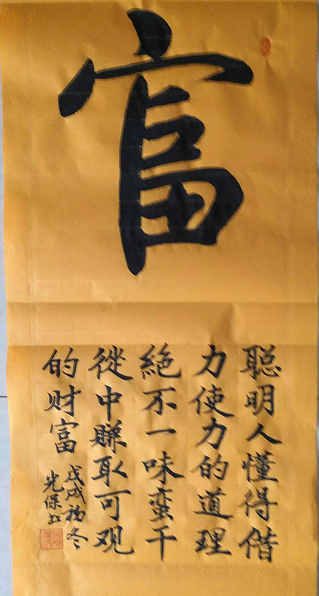 富
聪明人懂得偕
力使力的道理
絶不一味蛮干
從中賺取可观
的财富
戊戌初冬
光保书